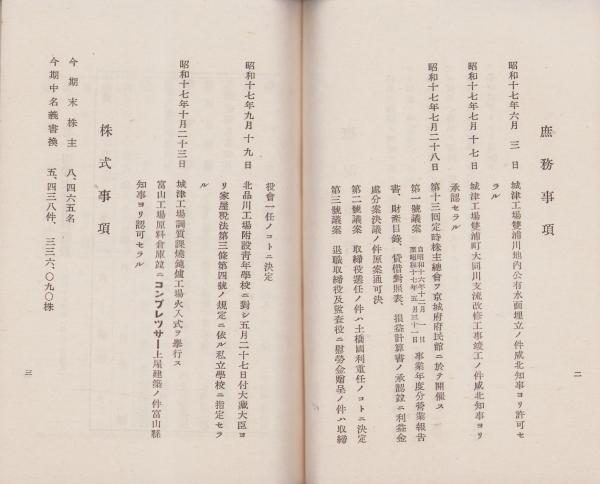 庶務事項
昭和十七年六月三日 城津工場雙浦川地內公有水面埋立ノ件咸北知事ヨリ許可セ
ラル
昭和十七年七月十七日 城津工場雙浦町大同川支流改修工事竣工ノ件咸北知事ヨリ
承認セラル
昭和十七年七月二十八日 第十三回定時株主總會ヲ京城府府民館ニ於テ開催ス
第一號議案 自昭和十六年十二月一日 至昭和十七年五月三十一日 事業年度分營業報告
書、財產目錄、貸借對照表、損益計算書ノ承認竝ニ利益金
處分案決議ノ件原案通可決
第二號議案 取締役選任ノ件ハ土橋國利重任ノコトニ決定
第三號議案 退職取締役及監査役ニ慰勞金贈呈ノ件ハ取締
二
役會一任ノコトニ決定
昭和十七年九月十九日 北品川工場附設靑年學校ニ對シ五月二十七日付大藏大臣ヨ
リ家屋稅法第三條第四號ノ規定ニ依ル私立學校ニ指定セラ
ル
昭和十七年十月二十三日 城津工場調質課燒鈍爐工場火入式ヲ擧行ス
富山工場原料倉庫竝ニコンプレツサー上屋建築ノ件富山縣
知事ヨリ認可セラル
株式事項
今期末株主 八、四六五名
今期中名義書換 五、四三八件、三三六、〇九〇株
三